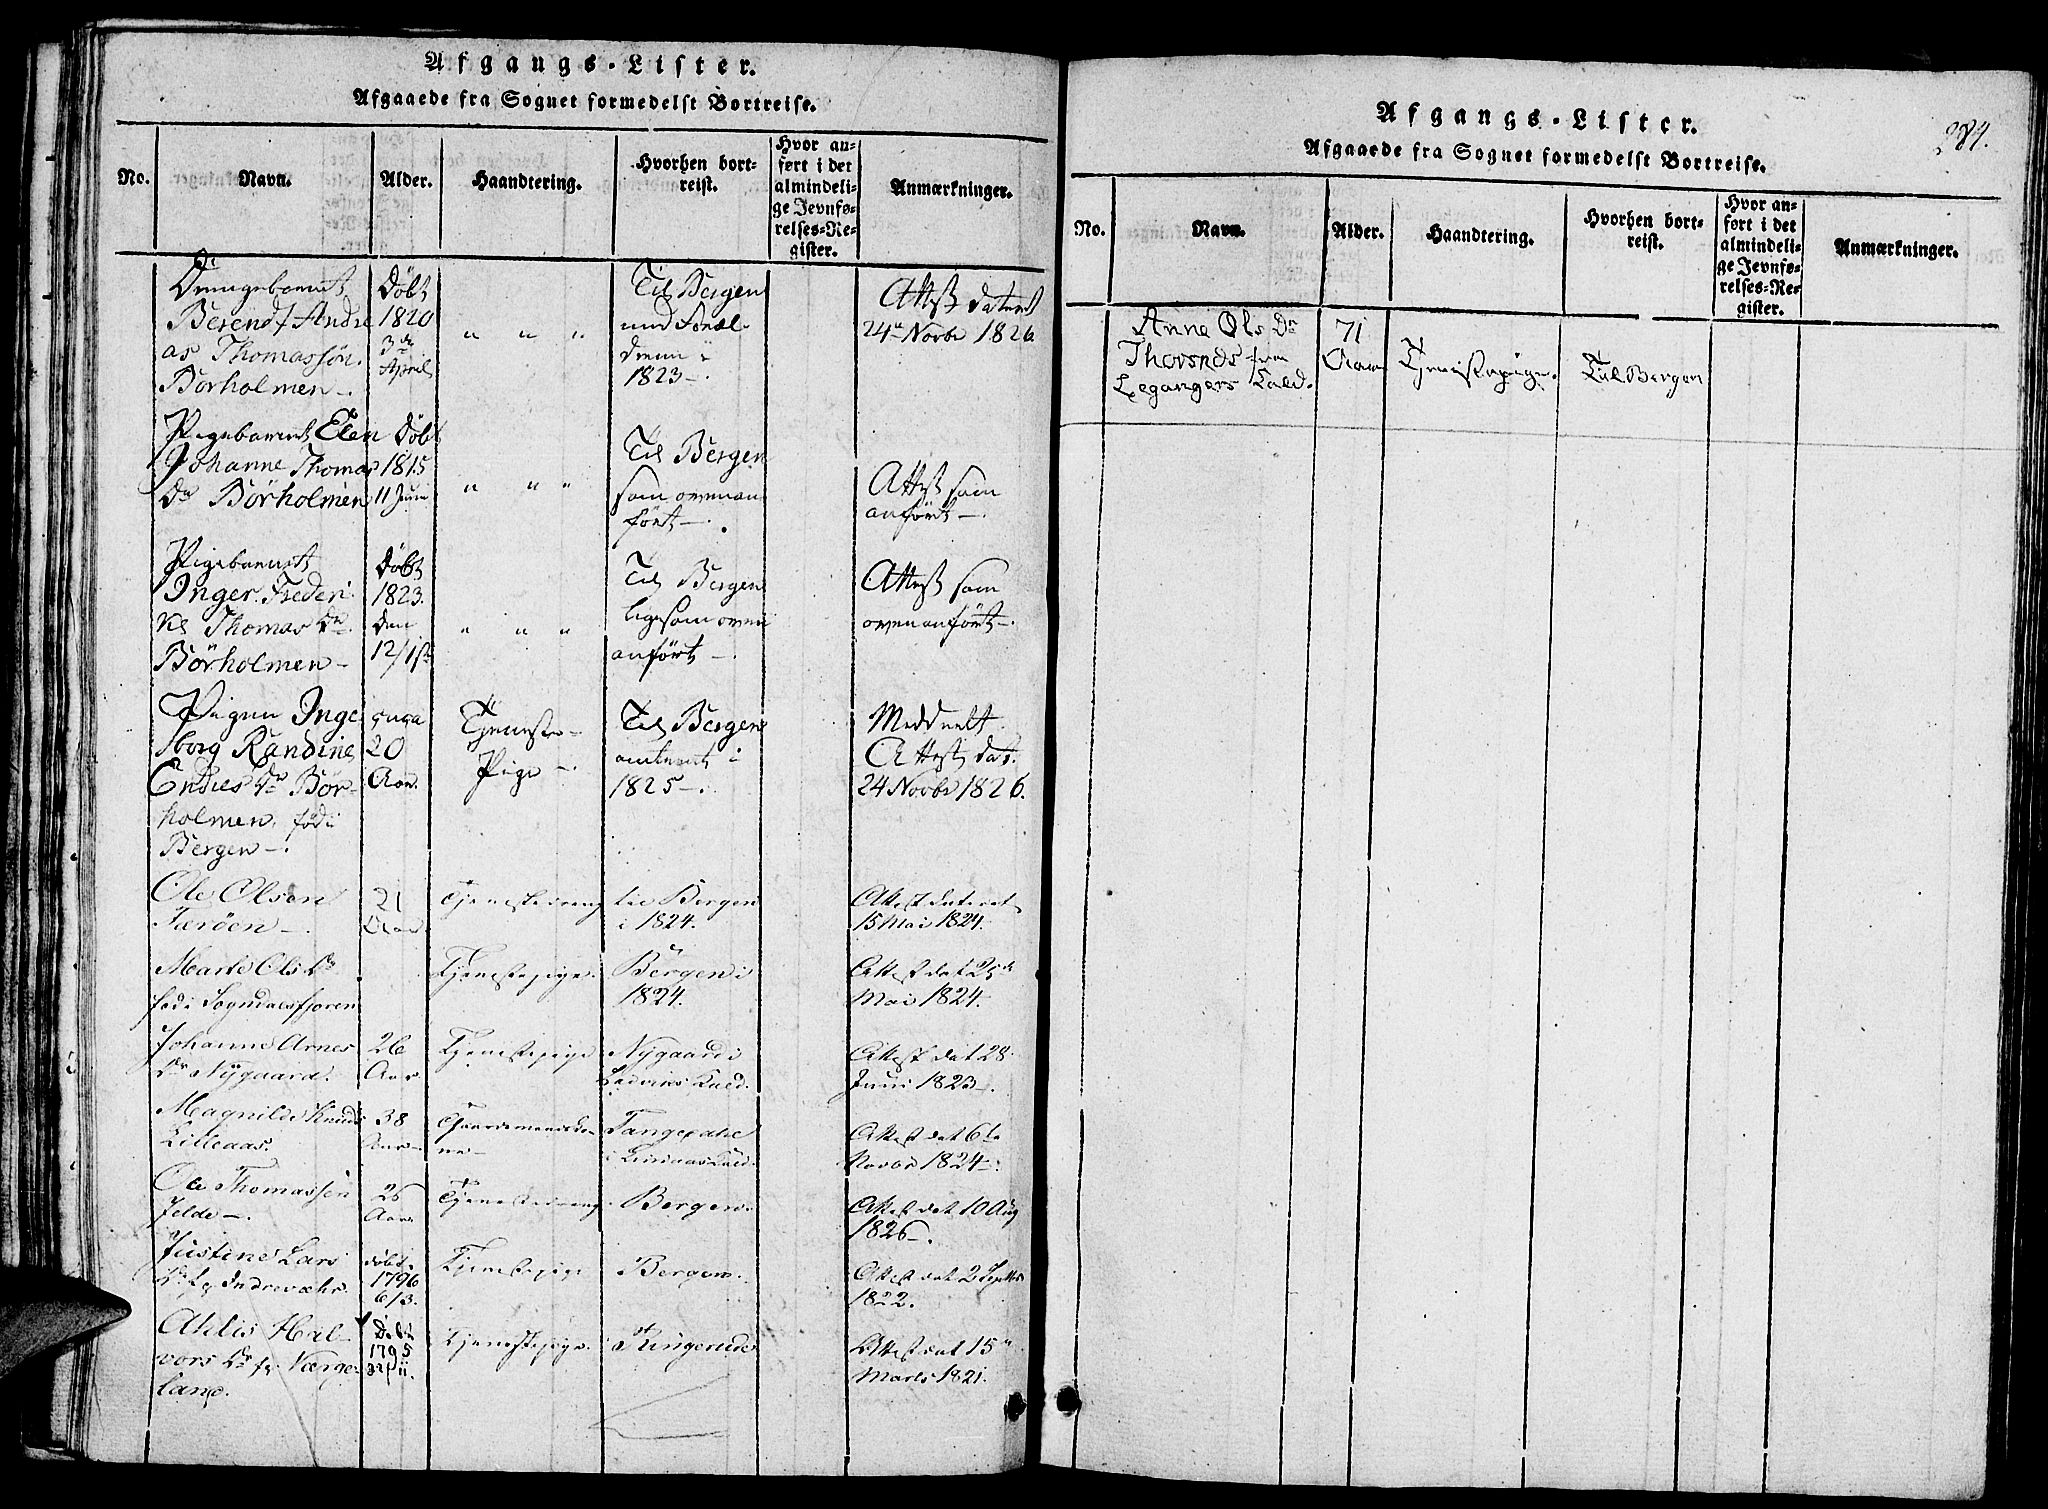 Afgangs-Lister.
Afgaaede fra Sognet formedelst Bortreise.
No.
Navn.
Alder.
Haandtering.
Hvorhen bort-
reist.
Hvor an-
ført i det
almindeli-
ge Jevnfø-
relses-Re-
gister.
Anmærkninger.
Drengebarnet
Berent Andre
as Thomassøn
Börholmen -
Döbt
1820
3de
April
" " "
Til Bergen
med Foræl-
drene i
1823 -.
Attest dateret
24de Novbr 1826
Pigebarnet Elen
Johanne Thomas
Dr Börholmen
Döbt
1815
11 Juni
" " "
Til Bergen
som ovenan
fört -.
Attest som
anfört -.
Pigebarnet
Inger Frederi
ke Thomas Dr
Börholmen -
Döbt
1823.
den
" " "
Til Bergen
ligesom oven
anfört -.
Attest som
ovenanfört -.
Pigen Inge
borg Randine
Endres Dr Bör-
holmen, föd i
Bergen -.
20
Aar.
Tjeneste-
Pige -.
Til Bergen
1825 -.
Meddeelt
Attest dat.
24 Novbr 1826.
Ole Olsen
Færöen -.
21
Aar
Tjenestedreng
til Bergen
i 1824.
Attest dateret
15 Mai 1824.
Marte Ols Dr
föd i Sogndalsfjoren
Tjenestepige.
Bergen i
1824.
Attest dat 25de
Mai 1824.
Johanne Arnes
Dr Nygaard.
26
Aar.
Tjenestepige
Nygaard i
Ladviks Kald.
Attest dat 28
Juni 1823 -.
Magnilde Knuds
Lilleaas.
38
Aar -
Gaardmands
Attest dat 6te
Novbr 1824 -.
Ole Thomassön
Felde -.
26
Aar
Tjenestedreng
Bergen.
Attest dat 10 Aug
1826 -.
Justine Lars
Dr fr Indrevæhr.
döbt
1796
6/3.
Tjenestepige
Bergen.
Attest dat 2 Septbr
1822.
Ahlis Hal-
vors Dr fr Værge-
land.
Döbt
1795
Tjenestepige.
Ringerude
Attest dat 15de
Marts 1821.
Afgangs-Lister.
284.
Afgaaede fra Sognet formedelst Bortreise.
No.
Navn.
Alder.
Haandtering.
Hvorhen bort-
reist.
Hvor an-
ført i det
almindeli-
ge Jevnfø-
relses-Re-
gister.
Anmærkninger.
Anna Ols Dr
fra
Legangers Kald.
71
Aar
Tjenestepige.
Til Bergen